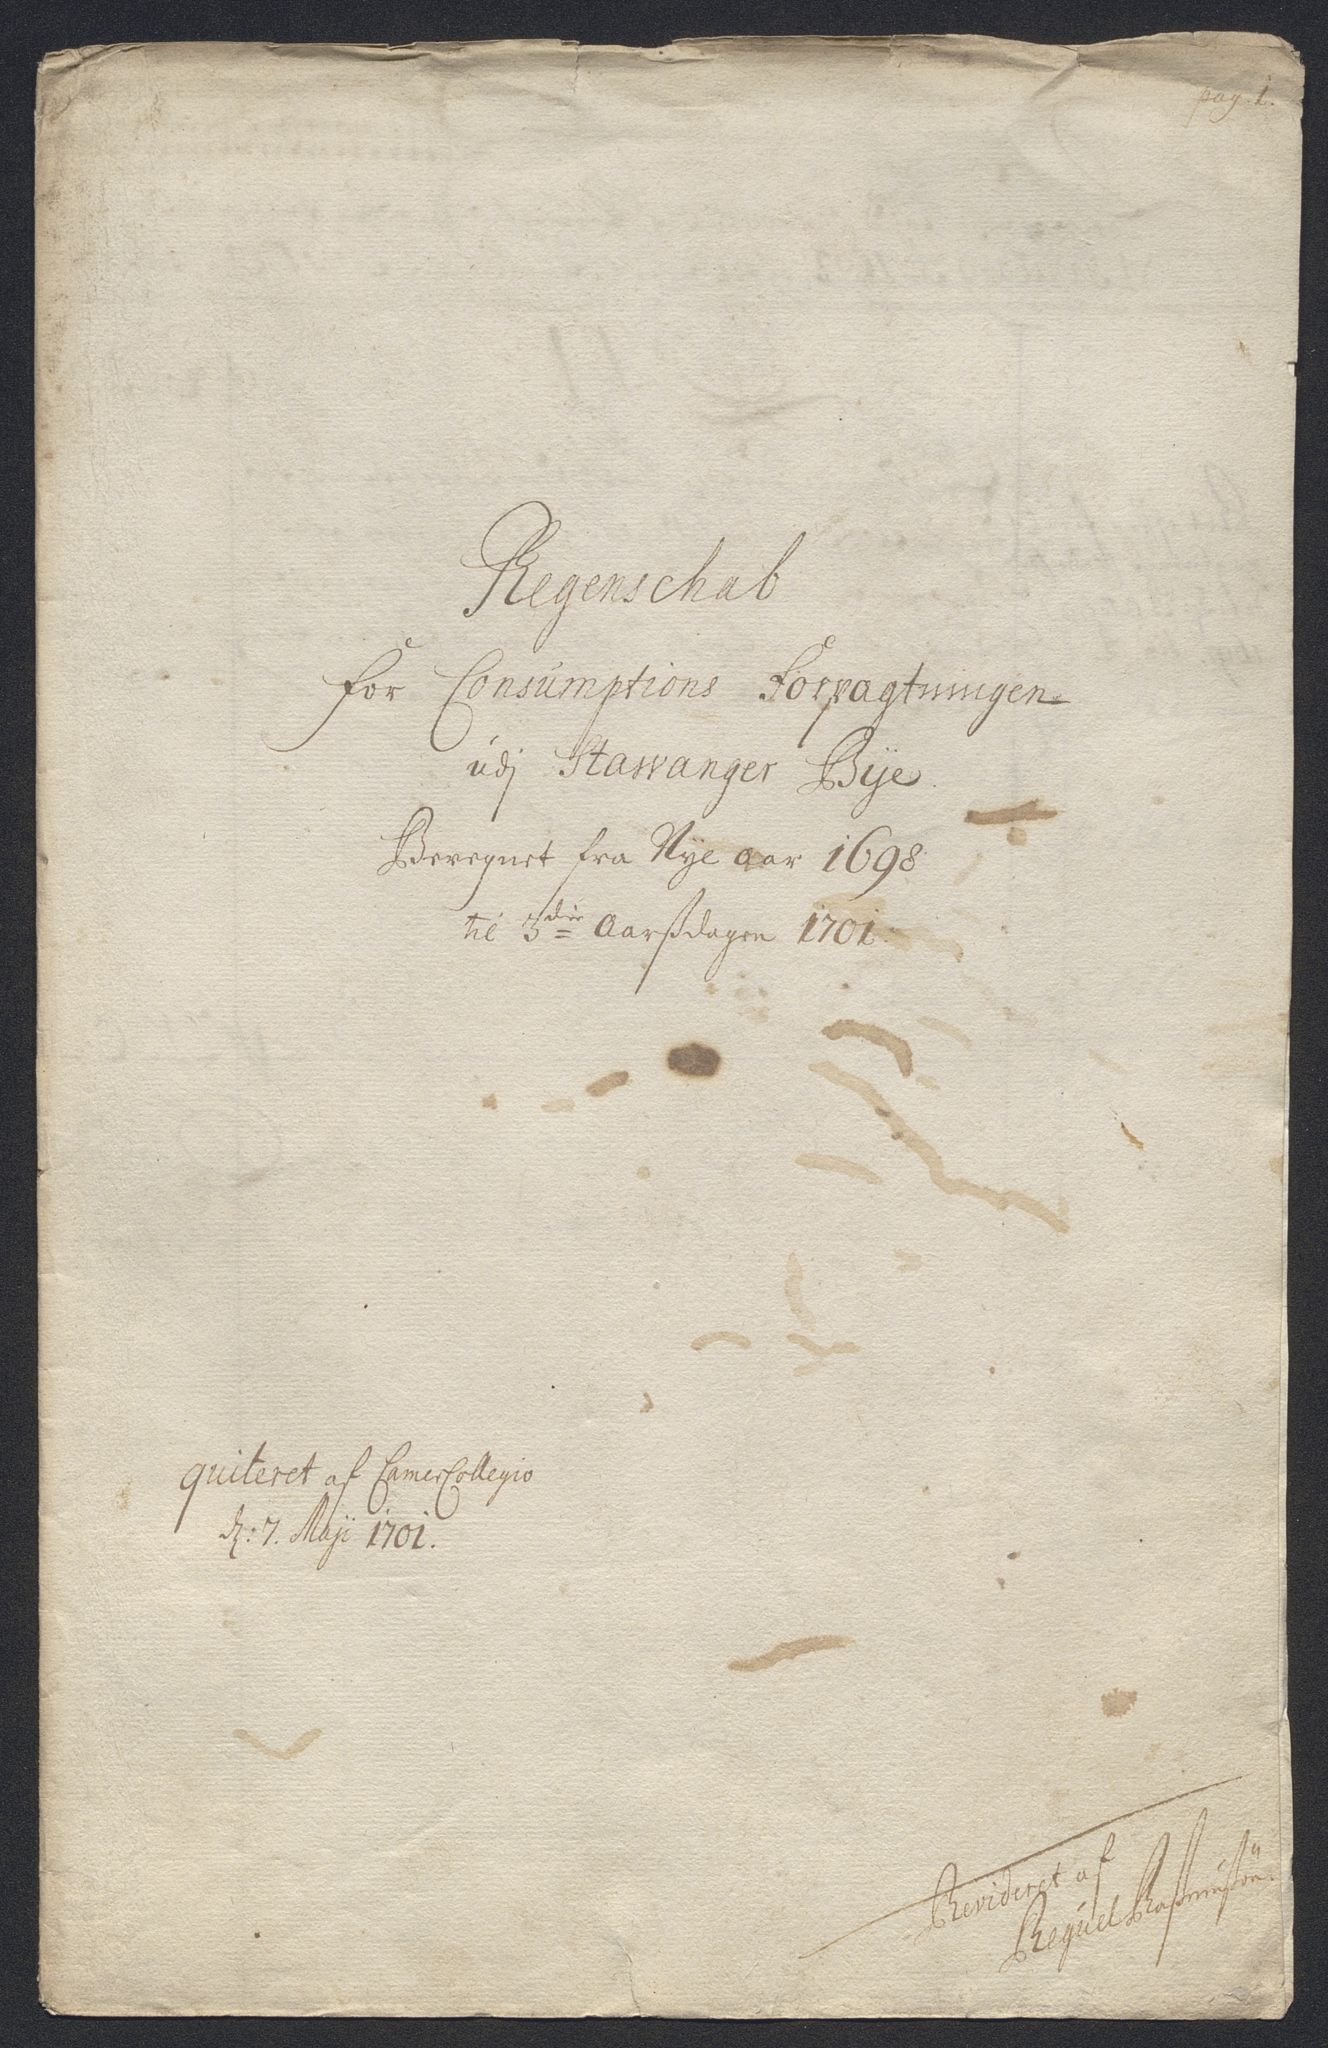 pag. 1.
Regenschab
for Consumptions Forpagtningen
udj Stavanger Bye.
Beregnet fra Nye aar 1698
til 3die Aarßdagen 1701.
quiteret af CamerCollegio
d: 7. Maji 1701.
Revideret af
Reguel Raßmußön.